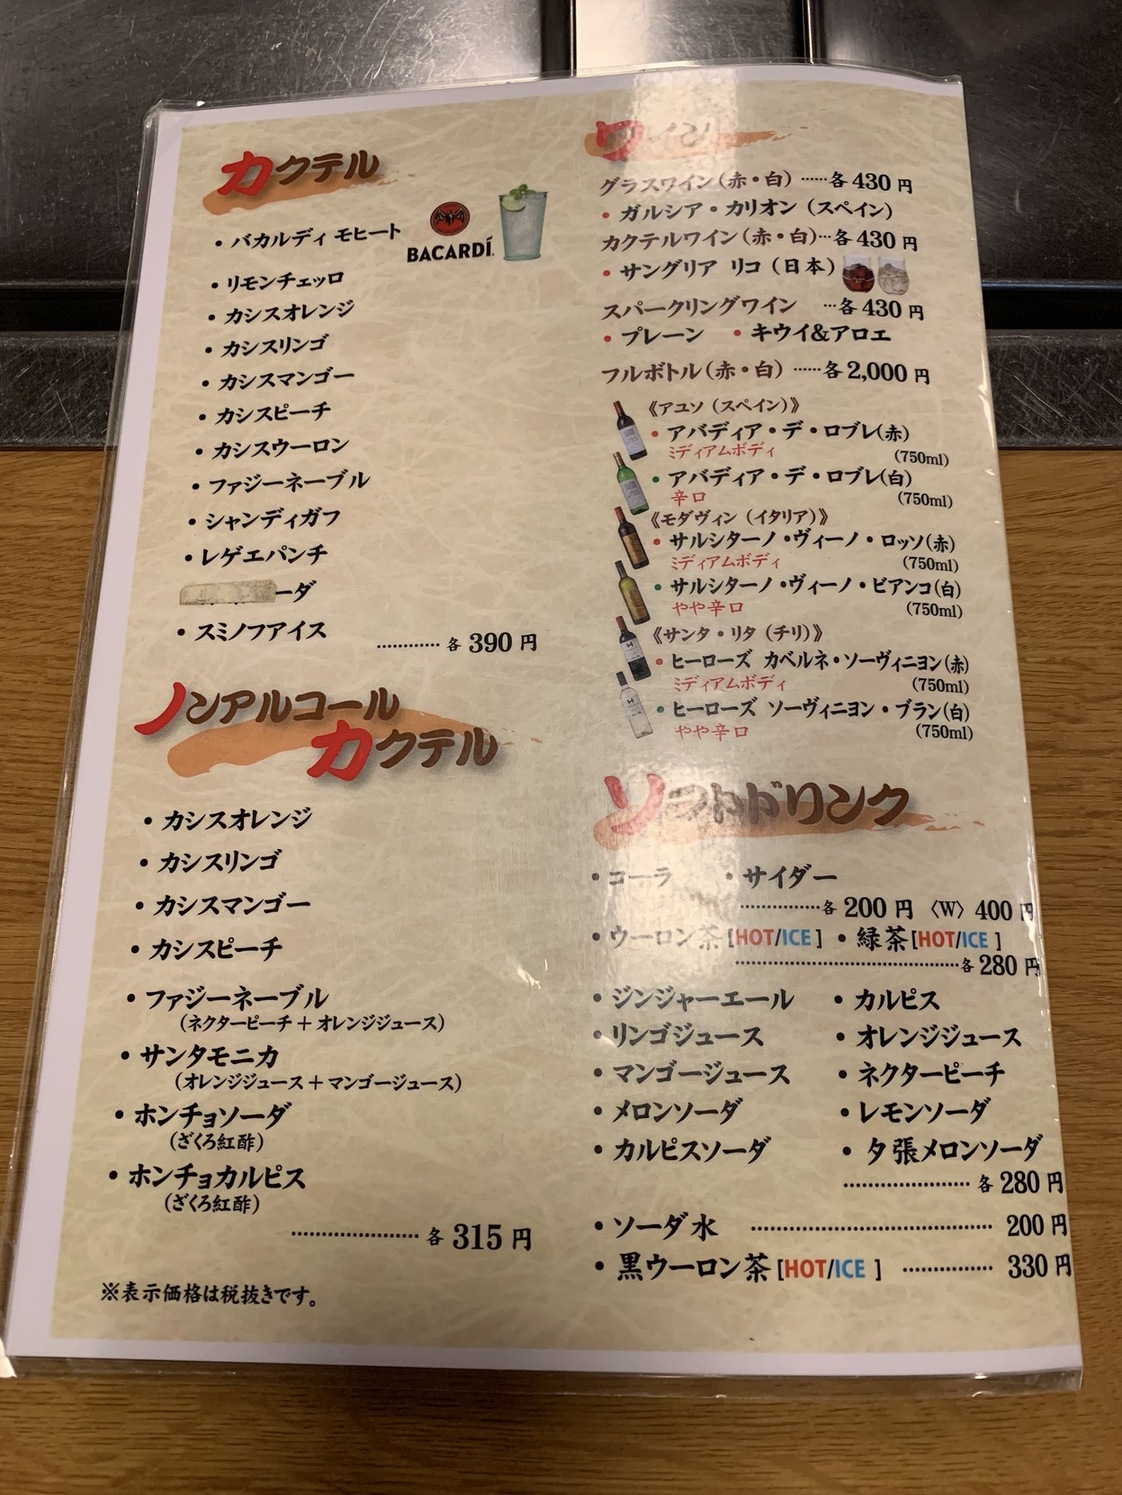 カクテル
・バカルディ モヒート
BACARDÍ
・リモンチェッロ
・カシスオレンジ
・カシスリンゴ
・カシスマンゴー
・カシスピーチ
・カシスウーロン
・ファジーネーブル
・シャンディガフ
・レゲエパンチ
ーダ
・スミノフアイス
…………各 390 円
ノンアルコール
カクテル
・カシスオレンジ
・カシスリンゴ
・カシスマンゴー
・カシスピーチ
・ファジーネーブル
(ネクターピーチ＋オレンジジュース)
・サンタモニカ
(オレンジジュース＋マンゴージュース)
・ホンチョソーダ
(ざくろ紅酢)
・ホンチョカルピス
(ざくろ紅酢)
…………………各 315 円
※表示価格は税抜きです。
ワイン
グラスワイン(赤・白)……各430円
・ガルシア・カリオン (スペイン)
カクテルワイン(赤・白)…各430円
・サングリア リコ (日本)
スパークリングワイン …各430円
・プレーン ・キウイ&アロエ
フルボトル(赤・白)……各2,000円
《アユソ (スペイン)》
・アバディア・デ・ロブレ(赤)
ミディアムボディ (750ml)
・アバディア・デ・ロブレ(白)
辛口 (750ml)
《モダヴィン (イタリア)》
・サルシターノ・ヴィーノ・ロッソ(赤)
ミディアムボディ (750ml)
・サルシターノ・ヴィーノ・ビアンコ(白)
やや辛口 (750ml)
《サンタ・リタ (チリ)》
・ヒーローズ カベルネ・ソーヴィニヨン(赤)
ミディアムボディ (750ml)
・ヒーローズ ソーヴィニヨン・ブラン(白)
やや辛口 (750ml)
ソフトドリンク
・コーラ ・サイダー
……………各 200 円 〈W〉 400 円
・ウーロン茶[HOT/ICE] ・緑茶[HOT/ICE]
……………………………………各280円
・ジンジャーエール ・カルピス
・リンゴジュース ・オレンジジュース
・マンゴージュース ・ネクターピーチ
・メロンソーダ ・レモンソーダ
・カルピスソーダ ・夕張メロンソーダ
…………………各 280 円
・ソーダ水 ……………………………………200円
・黒ウーロン茶[HOT/ICE] ……………330円